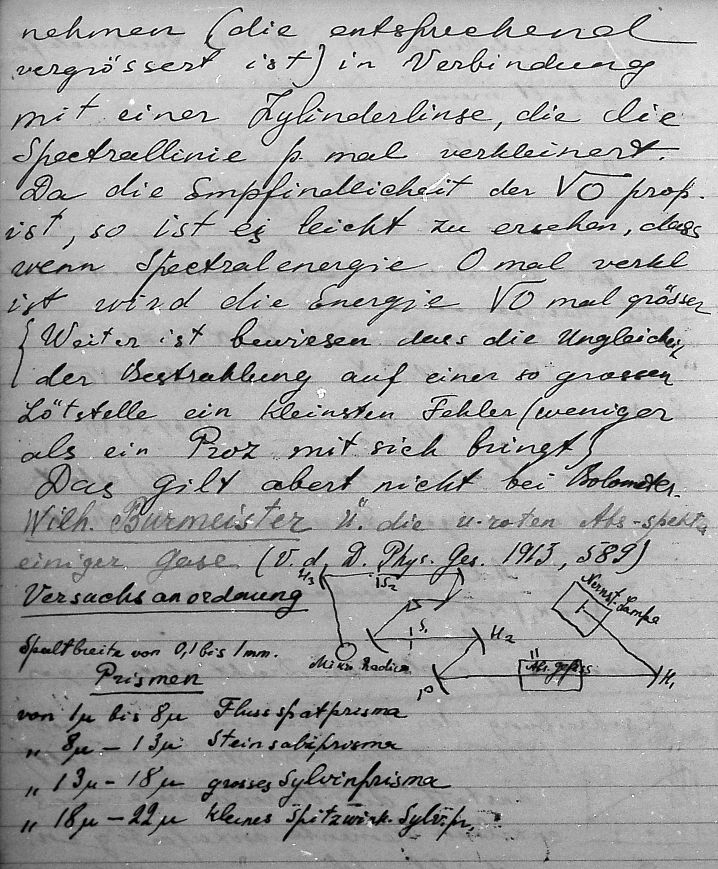 nehmen (die entsprechend
vergrössert ist) in Verbindung
mit einer Zylinderlinse, die die
Spectrallinie p mal verkleinert.
Da die Empfindlicheit der √O prop.
ist, so ist es leicht zu ersehen, dass
wenn Spectralenergie O mal verkl
ist wird die Energie √O mal grösser
{ Weiter ist bewiesen dass die Ungleicheit
der Bestrahlung auf einer so grossen
Lötstelle ein kleinsten Fehler (weniger
als ein Proz mit sich bringt}
Das gilt abert nicht bei Bolometer.
Wilh. Burmeister Ü. die u-roten Abs-spektra
einiger Gase (V. d. D. Phys. Ges. 1913, 589)
H3 S2
Versuchsanordnung
Nernst-Lampe
S1 H2
Spaltbreite von 0,1 bis 1 mm.
Mikro Radiom
Abs. gefäss
P H1
Prismen
von 1μ bis 8μ Flussspatprisma
„ 8μ – 13μ Steinsalzprisma
„ 13μ – 18μ grosses Sylvinprisma
„ 18μ – 22μ kleines spitzwink. Sylv. pr.